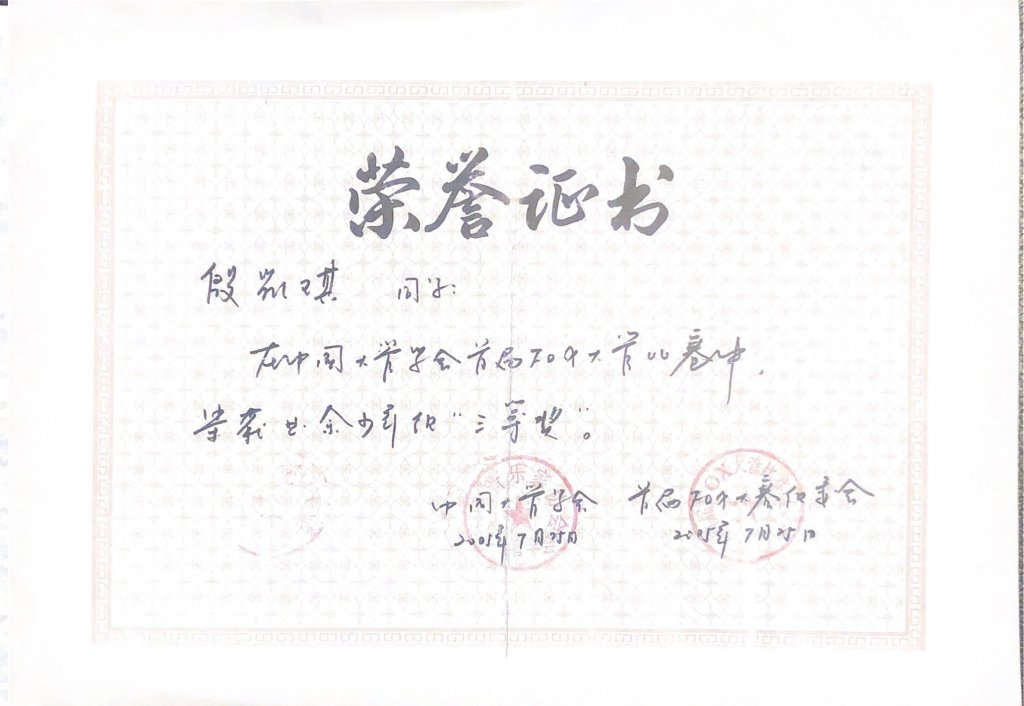 荣誉证书
殷凯琪 同学:
在中国大管学会首届FOX大管比赛中,
荣获业余少年组“三等奖”。
中国大管学会 首届FOX大赛组委会
2005年7月25日 2005年7月25日